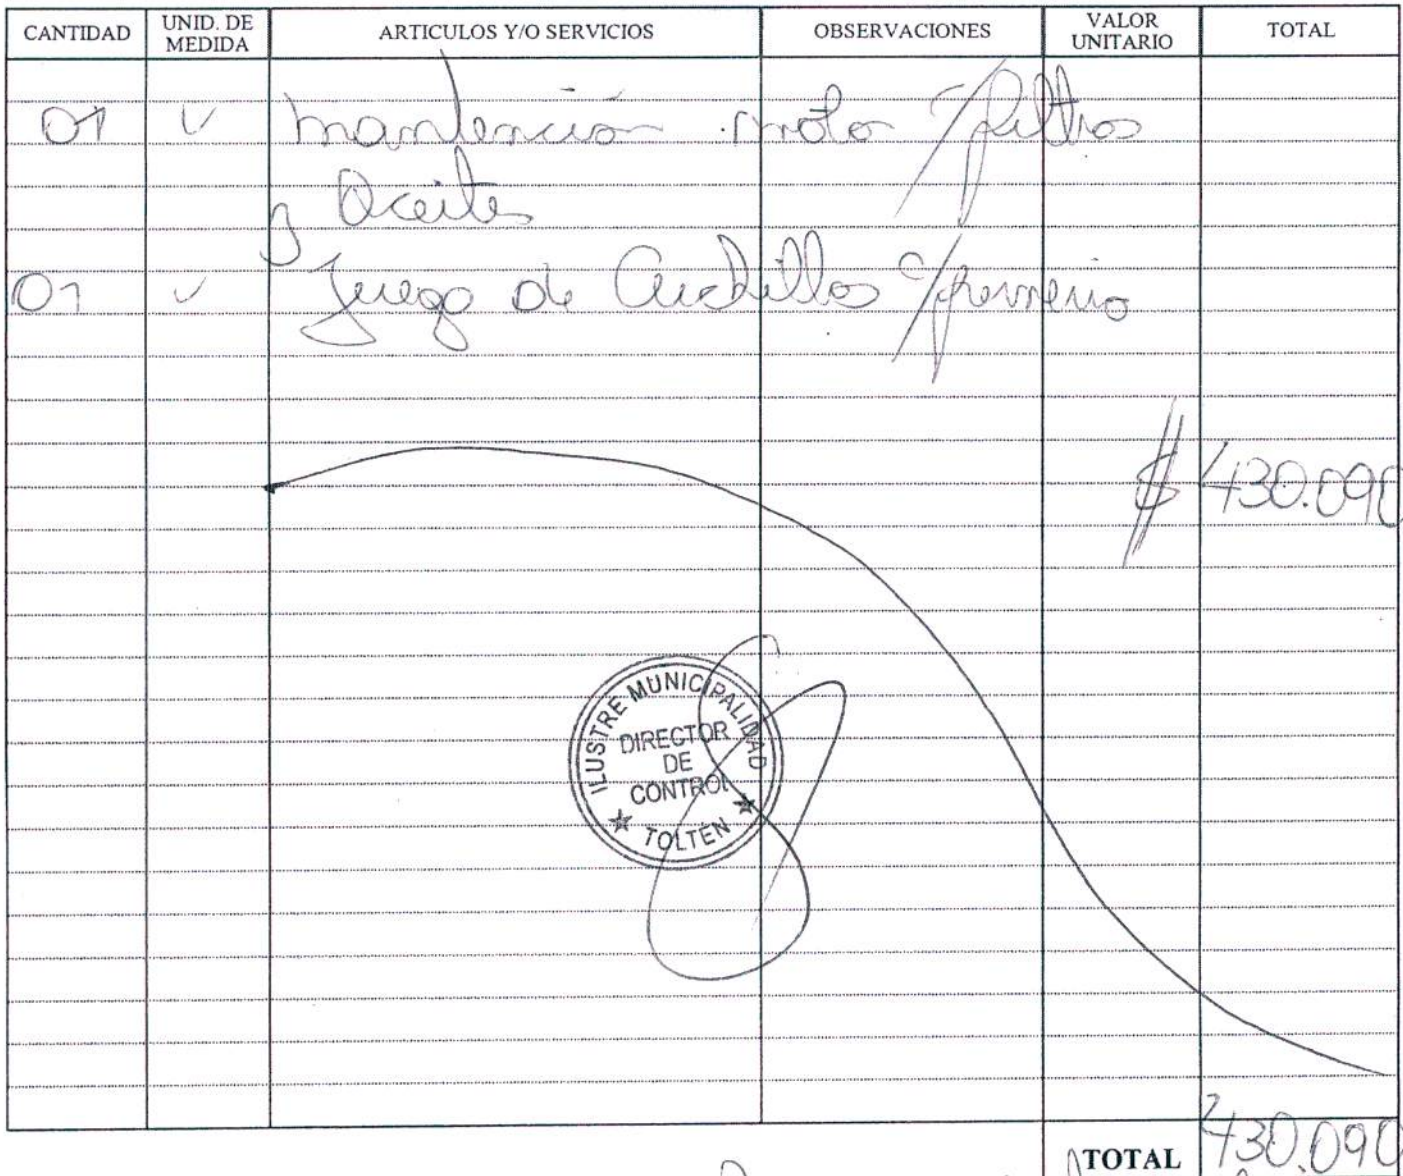 CANTIDAD UNID. DE MEDIDA ARTICULOS Y/O SERVICIOS OBSERVACIONES VALOR UNITARIO TOTAL
01 U mantención moto c/ filtros
y Aceites
01 U Juego de Cuchillos c/ pernerio
$ 430.090
ILUSTRE MUNICIPALIDAD
DIRECTOR
DE
CONTROL
TOLTEN
TOTAL 430.090